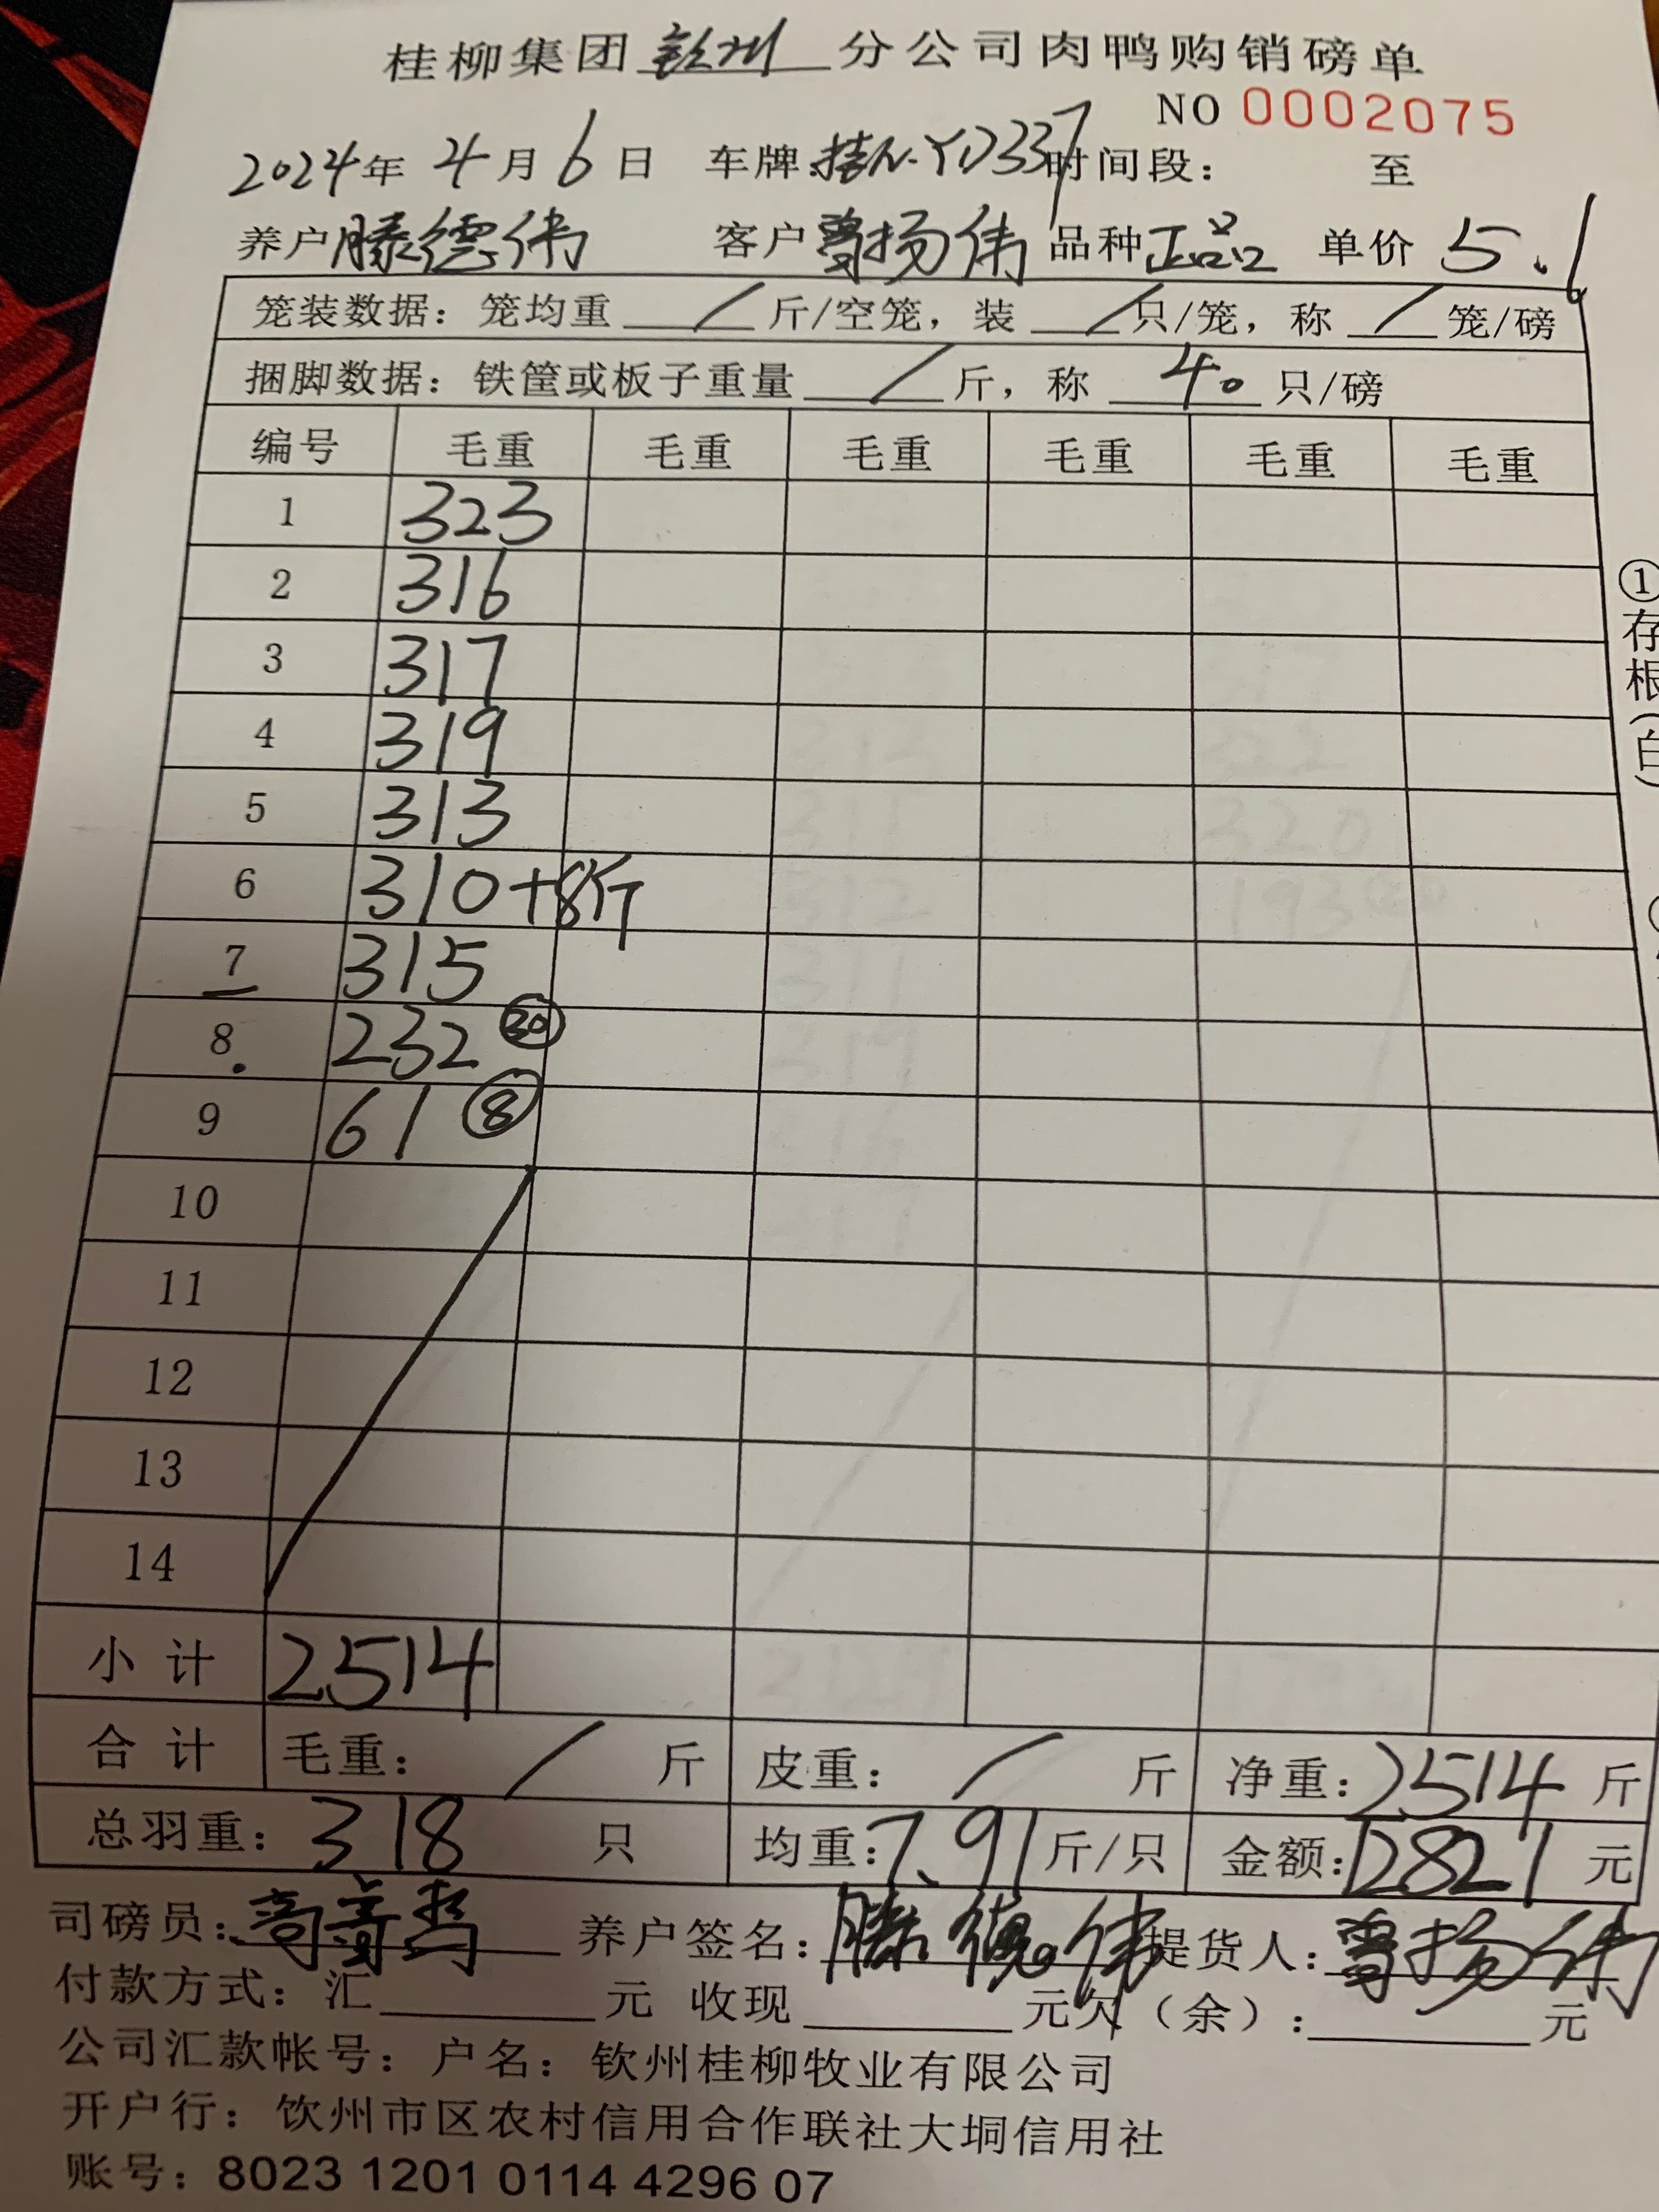 桂柳集团钦州分公司肉鸭购销磅单
NO 0002075
2024年 4月 6日 车牌:桂N·YD337 时间段: 至
养户滕德伟 客户曾扬伟 品种正品 单价 5.1
笼装数据:笼均重 / 斤/空笼,装 / 只/笼,称 / 笼/磅
捆脚数据:铁筐或板子重量 / 斤,称 40 只/磅
编号 毛重 毛重 毛重 毛重 毛重 毛重
1 323
2 316
3 317
4 319
5 313
6 310+8斤
7 315
8. 232 ㉚
9 61 ⑧
10
11
12
13
14
小计 2514
合计 毛重: / 斤 皮重: / 斤 净重:2514 斤
总羽重:318 只 均重:7.91 斤/只 金额:12821 元
司磅员: 养户签名:滕德伟 提货人:曾扬伟
付款方式:汇 元 收现 元欠(余): 元
公司汇款帐号:户名:钦州桂柳牧业有限公司
开户行:饮州市区农村信用合作联社大垌信用社
账号:8023 1201 0114 4296 07
①存根(白)